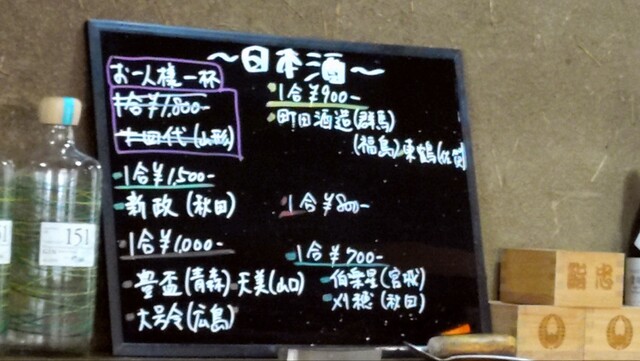 ~日本酒~
お一人様一杯
1合¥1,800-
十四代(山形)
1合¥1,500-
新政(秋田)
1合¥1,000-
豊盃(青森) 天美(山口)
大号令(広島)
1合¥900-
町田酒造(群馬)
(福島) 東鶴(佐賀)
1合¥800-
1合¥700-
伯楽星(宮城)
刈穂(秋田)
151